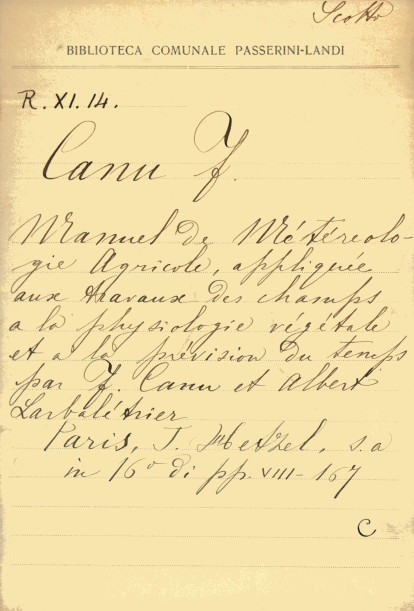 Scotto
BIBLIOTECA COMUNALE PASSERINI-LANDI
R. XI. 14.
Canu F.
Manuel de Météreolo-
gie Agricole, appliquée
aux travaux des champs
a la physiologie végétale
et a la prévision du temps
par F. Canu et Albert
Larbalétrier
Paris, J. Hetzel, s. a
in 16° di pp. VIII - 167
C